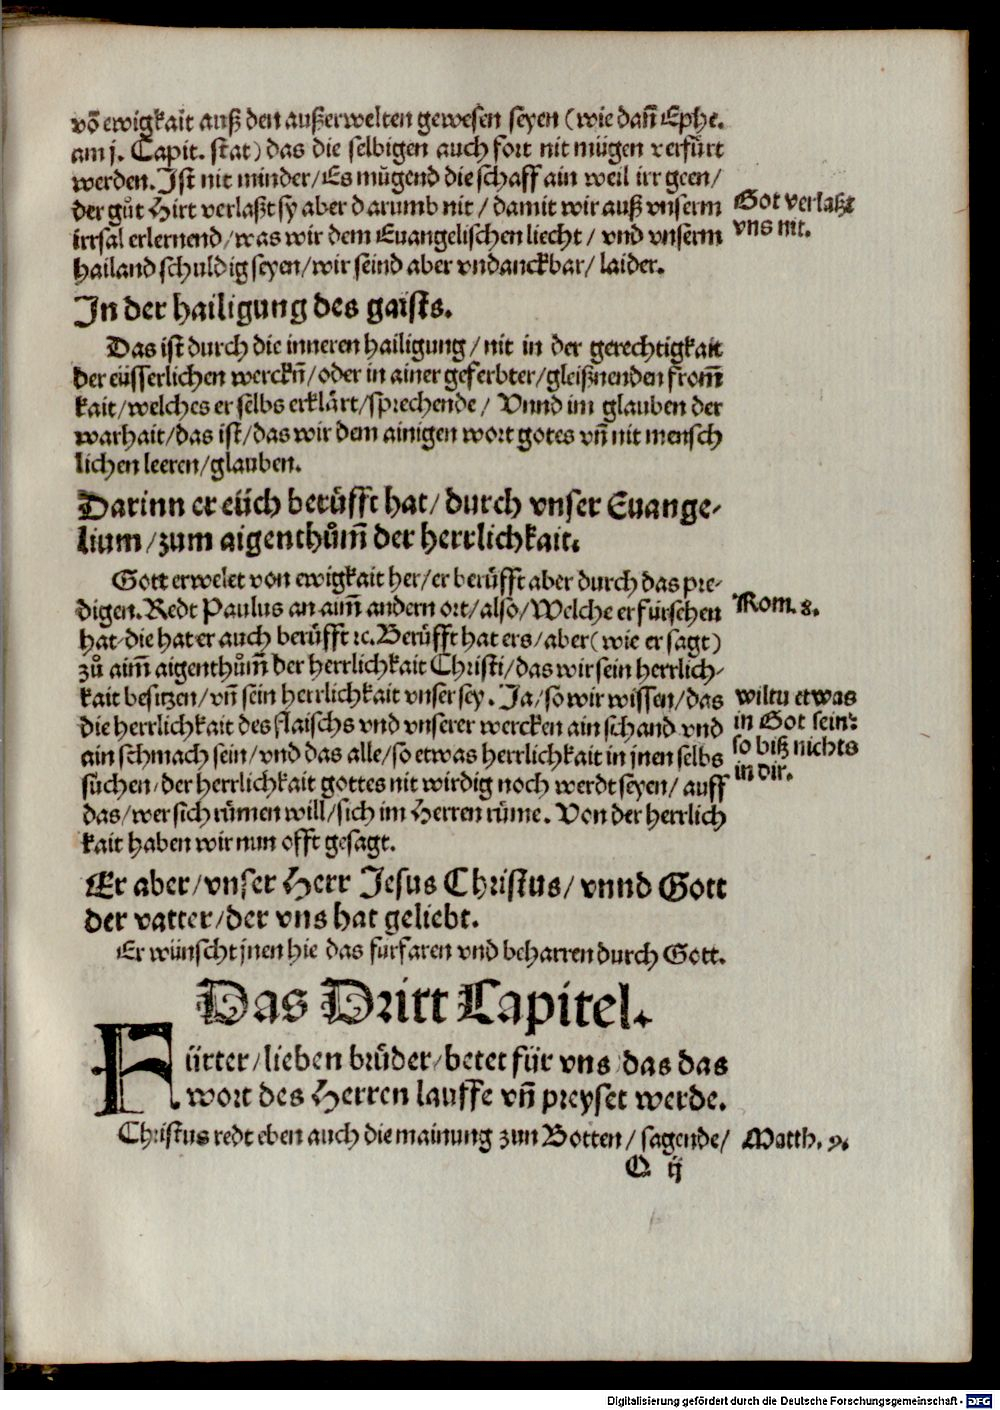 vō ewigkait auß den außerwelten gewesen seyen (wie dañ Ephe.
am j. Capit. stat) das die selbigen auch fort nit mügen verfürt
werden. Ist nit minder / Es mügend die schaff ain weil irr geen /
der gůt Hirt verlaßt sy aber darumb nit / damit wir auß vnserm
irrsal erlernend / was wir dem Euangelischen liecht / vnd vnserm
hailand schuldig seyen / wir seind aber vndanckbar / laider.
Got verlaßt
vns nit.
In der hailigung des gaists.
Das ist durch die inneren hailigung / nit in der gerechtigkait
der eüsserlichen werckñ / oder in ainer geferbter / gleißnenden from̄
kait / welches er selbs erklärt / sprechende / Vnnd im glauben der
warhait / das ist / das wir dem ainigen wort gotes vñ nit mensch
lichen leeren / glauben.
Darinn er eüch berůfft hat / durch vnser Euange-
lium / zum aigenthům̄ der herrlichkait.
Gott erwelet von ewigkait her / er berůfft aber durch das pre-
digen. Redt Paulus an aim̄ andern ort / also / Welche er fürsehen
hat / die hat er auch berůfft ꝛc. Berůfft hat ers / aber (wie er sagt)
zů aim̄ aigenthům̄ der herrlichkait Christi / das wir sein herrlich-
kait besitzen / vñ sein herrlichkait vnser sey. Ja / so wir wissen / das
die herrlichkait des flaischs vnd vnserer wercken ain schand vnd
ain schmach sein / vnd das alle / so etwas herrlichkait in jnen selbs
sůchen / der herrlichkait gottes nit wirdig noch werdt seyen / auff
das / wer sich růmen will / sich im Herren růme. Von der herrlich
kait haben wir nun offt gesagt.
Rom. 8.
wiltu etwas
in Got sein:
so biß nichts
in dir.
Er aber / vnser Herr Jesus Christus / vnnd Gott
der vatter / der vns hat geliebt.
Er wünscht jnen hie das fürfaren vnd beharren durch Gott.
Das Dritt Capitel.
Fürter / lieben brůder / betet für vns / das das
wort des Herren lauffe vñ preyset werde.
Christus redt eben auch die mainung zun Botten / sagende /
Matth. 9.
Q ij
Digitalisierung gefördert durch die Deutsche Forschungsgemeinschaft - DFG